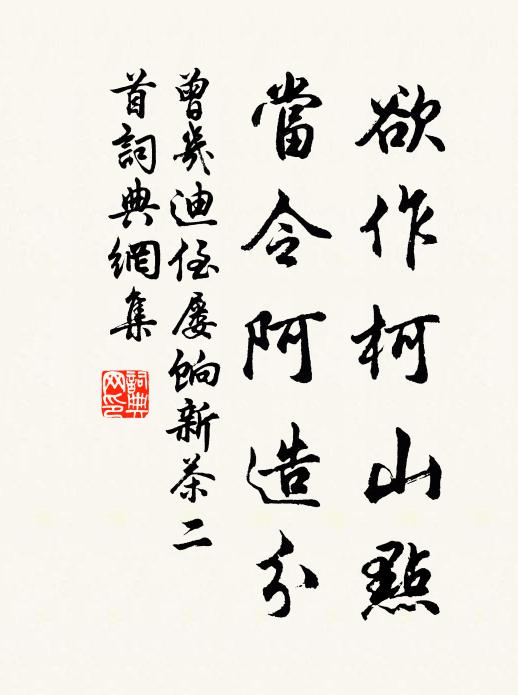 欲作柯山點
當令阿造分
曾幾迪侄屢餉新茶二
首詞典網集
詞典
网印